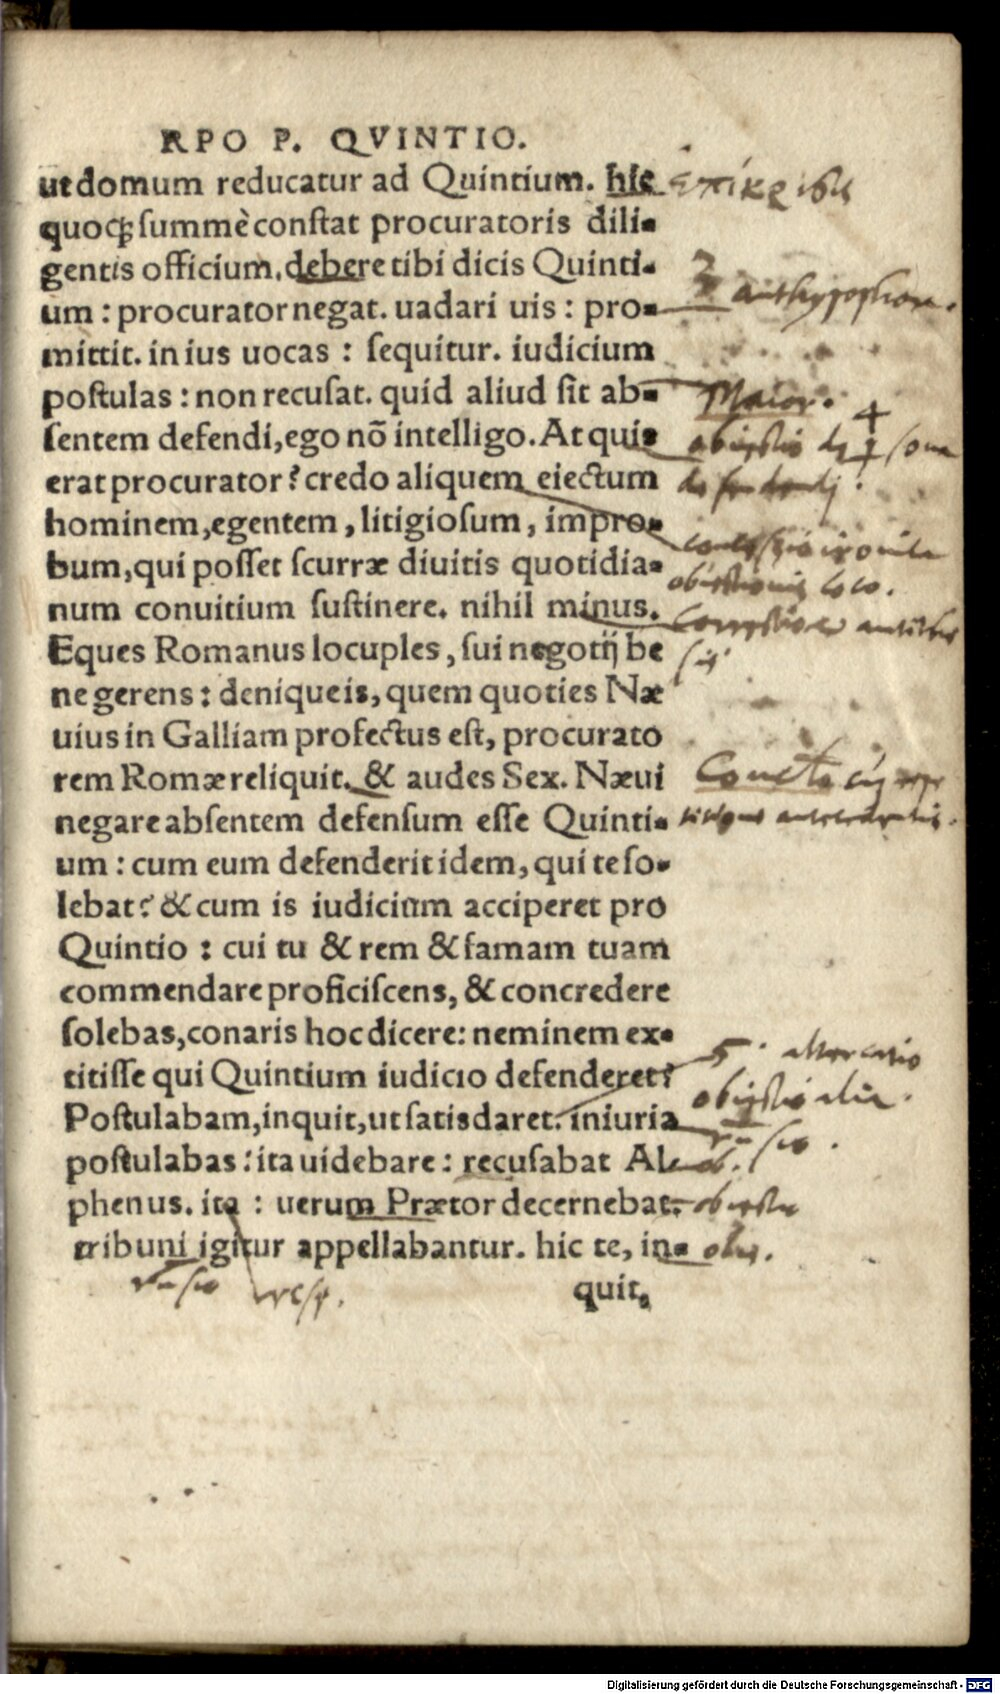 RPO P. QVINTIO.
ut domum reducatur ad Quintium. hic
quoqꝫ summè constat procuratoris dili-
gentis officium, debere tibi dicis Quinti-
um : procurator negat. uadari uis : pro-
mittit. in ius uocas : sequitur. iudicium
postulas : non recusat. quid aliud sit ab-
sentem defendi, ego nõ intelligo. At quis
erat procurator? credo aliquem eiectum
hominem, egentem, litigiosum, impro-
bum, qui posset scurræ diuitis quotidia-
num conuitium sustinere. nihil minus.
Eques Romanus locuples, sui negotij be
ne gerens : denique is, quem quoties Næ
uius in Galliam profectus est, procurato
rem Romæ reliquit. & audes Sex. Næui
negare absentem defensum esse Quinti-
um : cum eum defenderit idem, qui te so-
lebat? & cum is iudicium acciperet pro
Quintio : cui tu & rem & famam tuam
commendare proficiscens, & concredere
solebas, conaris hoc dicere: neminem ex-
titisse qui Quintium iudicio defenderet?
Postulabam, inquit, ut satisdaret. iniuria
postulabas : ita uidebare : recusabat Al-
phenus. ita : uerum Prætor decernebat.
tribuni igitur appellabantur. hic te, in-
quit,
3 anthypophora.
Maior.
4
5. altercatio
obiectio alia.
ob.
resp.
Digitalisierung gefördert durch die Deutsche Forschungsgemeinschaft - DFG